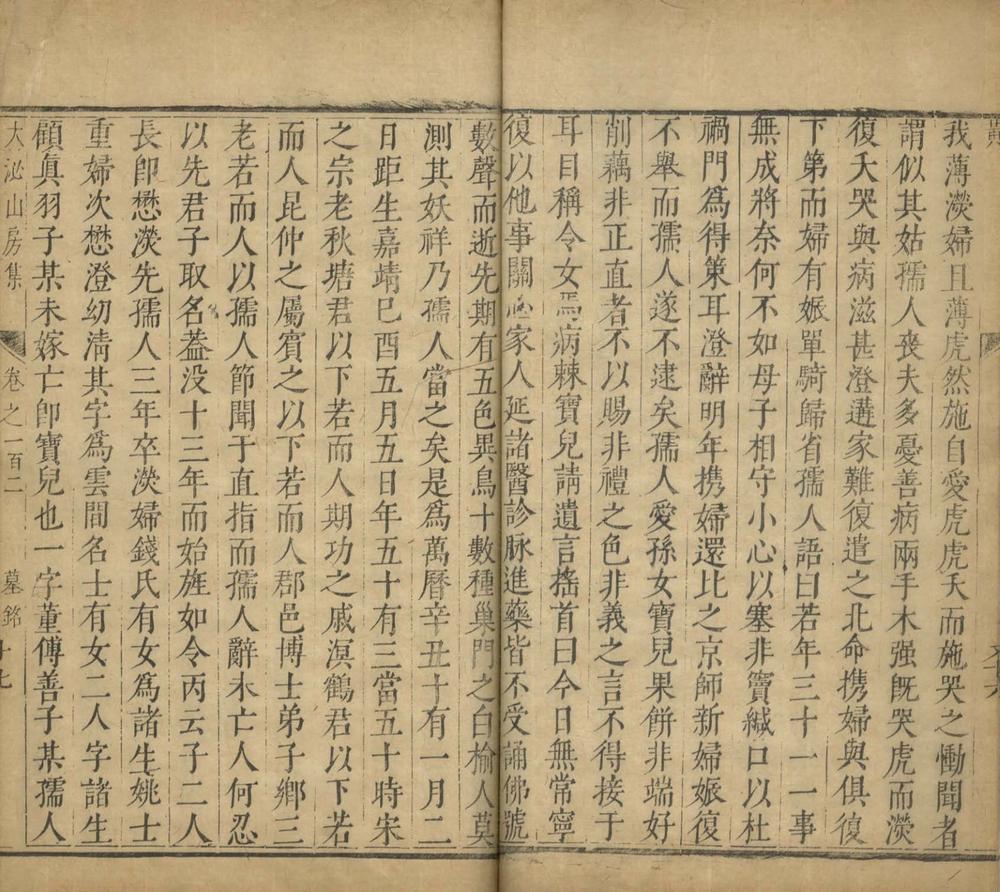 我薄濙婦且薄虎然施自愛虎虎夭而施哭之慟聞者
謂似其姑孺人喪夫多憂善病兩手木强既哭虎而濙
復夭哭與病滋甚澄遘家難復遣之北命携婦與俱復
下第而婦有娠單騎歸省孺人語曰若年三十一一事
無成將奈何不如母子相守小心以塞非竇緘口以杜
禍門爲得策耳澄辭明年携婦還比之京師新婦娠復
不舉而孺人遂不逮矣孺人愛孫女寶兒果餅非端好
削藕非正直者不以賜非禮之色非義之言不得接于
耳目稱令女焉病棘寶兒請遺言搖首曰今日無常寧
復以他事關心家人延諸醫診脉進藥皆不受誦佛號
數聲而逝先期有五色異鳥十數種巢門之白榆人莫
測其妖祥乃孺人當之矣是爲萬曆辛丑十有一月二
日距生嘉靖巳酉五月五日年五十有三當五十時宋
之宗老秋塘君以下若而人期功之戚溟鶴君以下若
而人昆仲之屬賓之以下若而人郡邑博士弟子鄉三
老若而人以孺人節聞于直指而孺人辭未亡人何忍
以先君子取名蓋没十三年而始旌如令丙云子二人
長卽懋濙先孺人三年卒濙婦錢氏有女爲諸生姚士
重婦次懋澄幼清其字爲雲間名士有女二人字諸生
顧眞羽子某未嫁亡卽寶兒也一字董傅善子某孺人
大泌山房集 卷之一百二 墓銘 十七